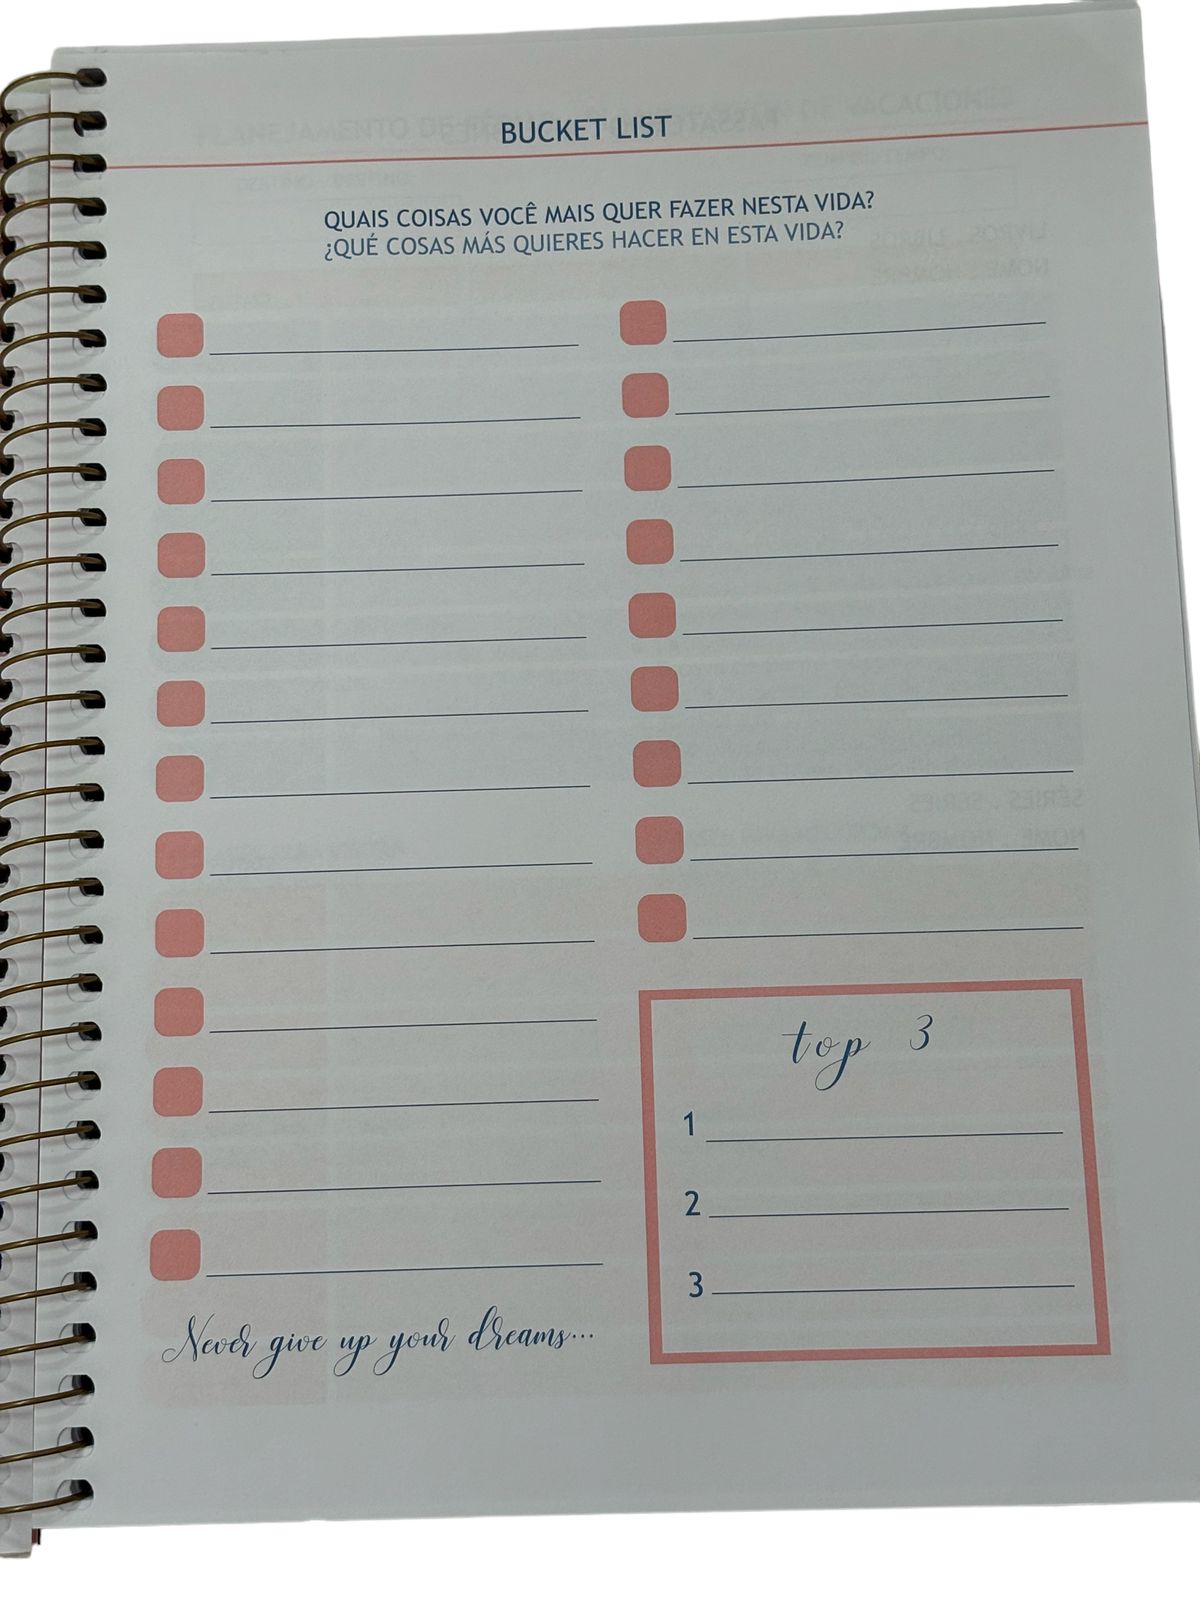 BUCKET LIST
QUAIS COISAS VOCÊ MAIS QUER FAZER NESTA VIDA?
¿QUÉ COSAS MÁS QUIERES HACER EN ESTA VIDA?
top 3
1
2
3
Never give up your dreams...